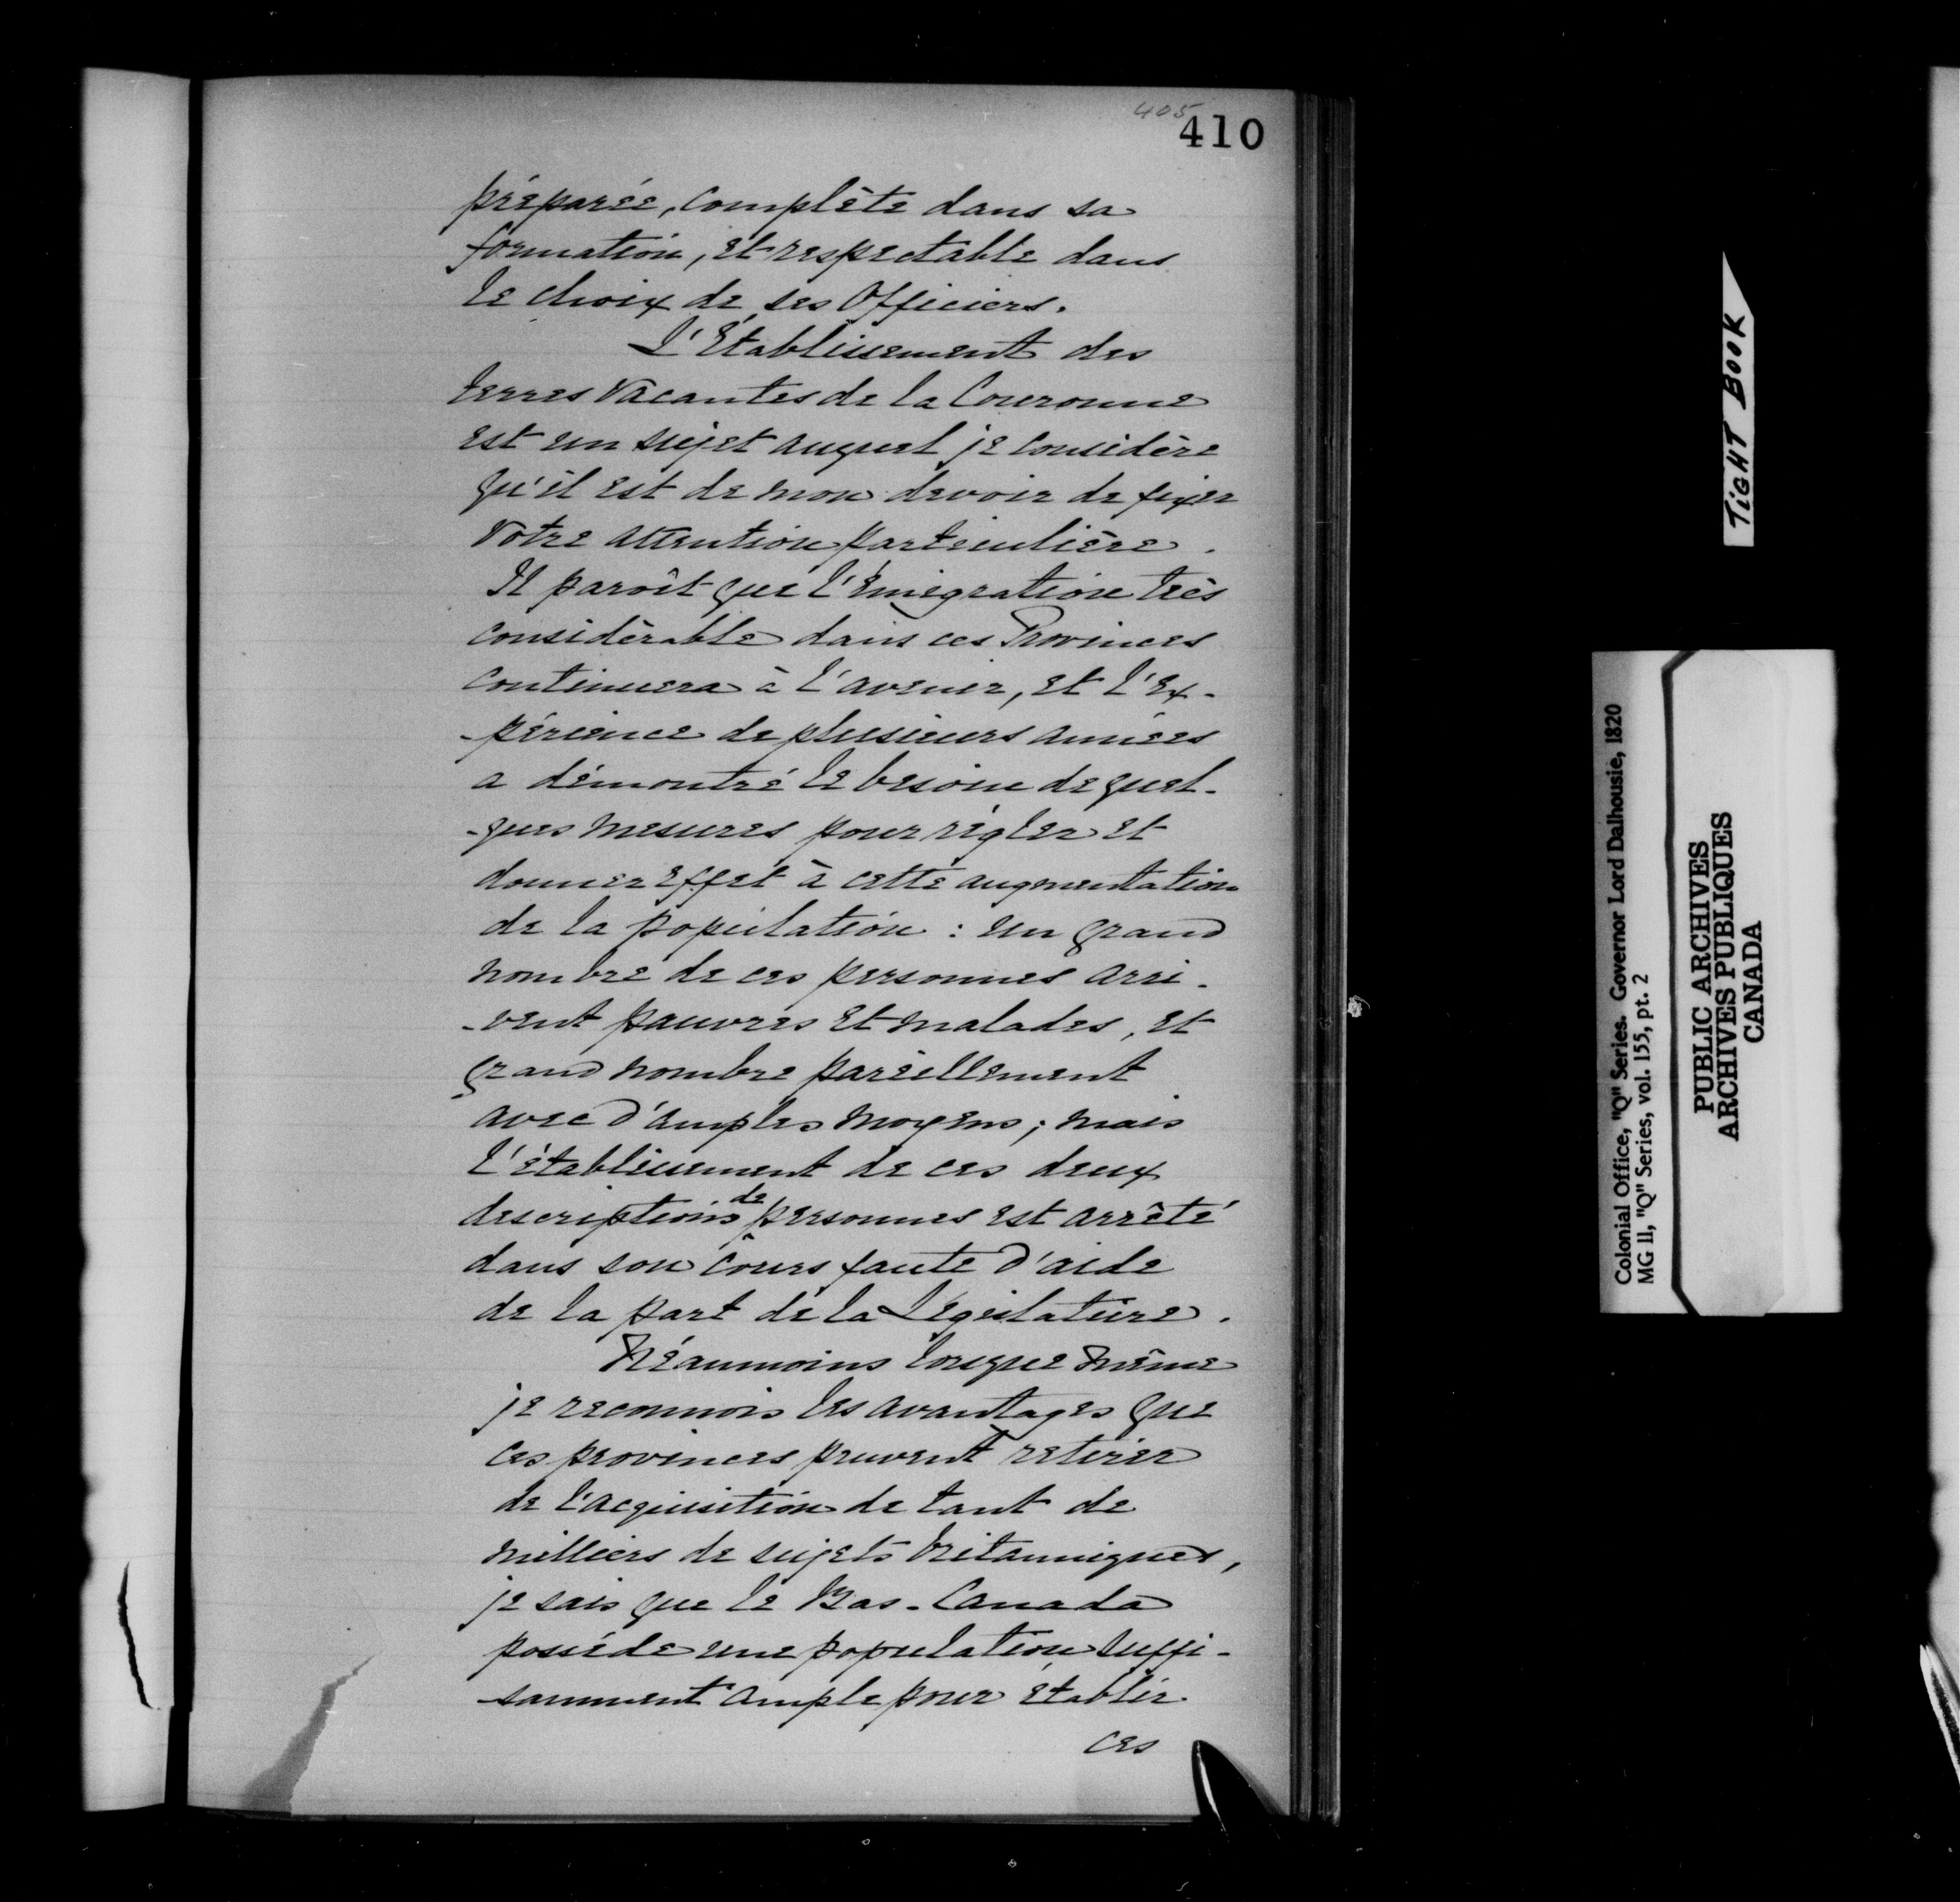 405
410
préparée, complète dans sa
formation, et respectable dans
le choix de ses Officiers.
L'Etablissement des
terres vacantes de la Couronne
est un sujet auquel je considère
qu'il est de mon devoir de fixer
votre attention particulière.
Il paroît que l'émigration très
considérable dans ces Provinces
continuera à l'avenir, et l'ex-
-périence de plusieurs années
a démontré le besoin de quel-
-ques mesures pour régler et
donner effet à cette augmentation
de la population : un grand
nombre de ces personnes arri-
-vent pauvres et malades, et
grand nombre pareillement
avec d'amples moyens; mais
l'établissement de ces deux
descriptions de personnes est arrêté
dans son cours faute d'aide
de la part de la Législature.
Néanmoins lorsque même
je reconnois les avantages que
ces provinces peuvent retirer
de l'acquisition de tant de
milliers de sujets britanniques,
je sais que le Bas-Canada
possède une population suffi-
-samment ample pour établir
ces
TIGHT BOOK
Colonial Office, "Q" Series. Governor Lord Dalhousie, 1820
MG 11, "Q" Series, vol. 155, pt. 2
PUBLIC ARCHIVES
ARCHIVES PUBLIQUES
CANADA